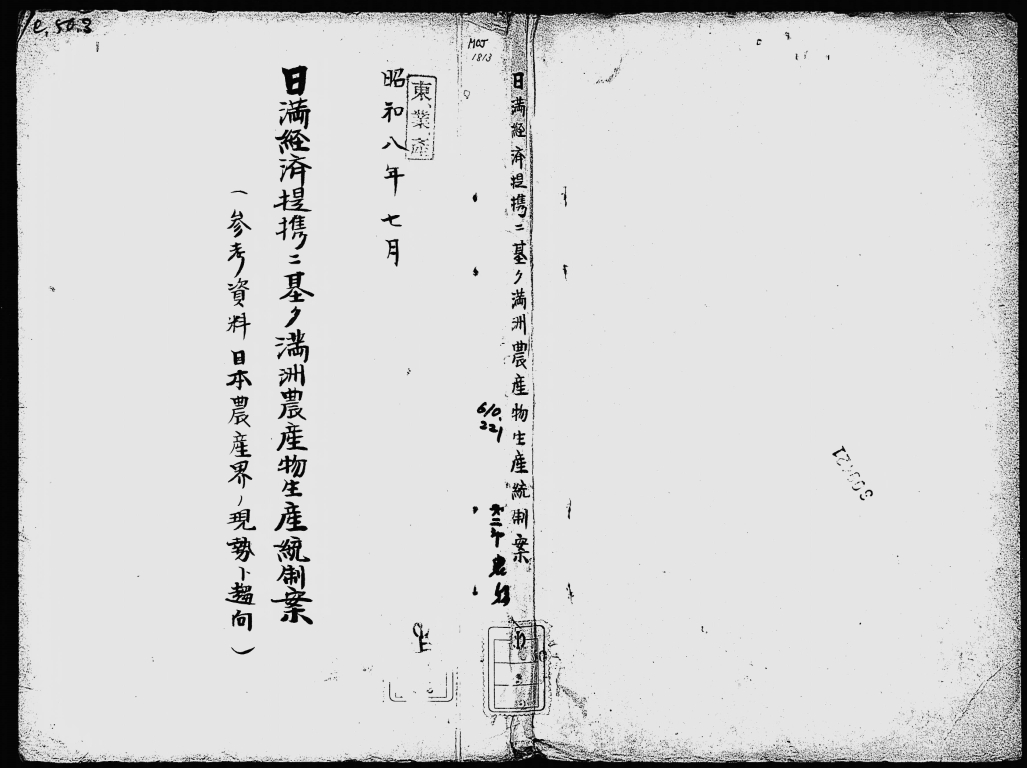 C.50.3
昭和八年七月
東業産
日満経済提携ニ基ク満洲農産物生産統制案
（参考資料 日本農産界ノ現勢ト趨向）
MOJ
1813
日満経済提携ニ基ク満洲農産物生産統制案
610.
221